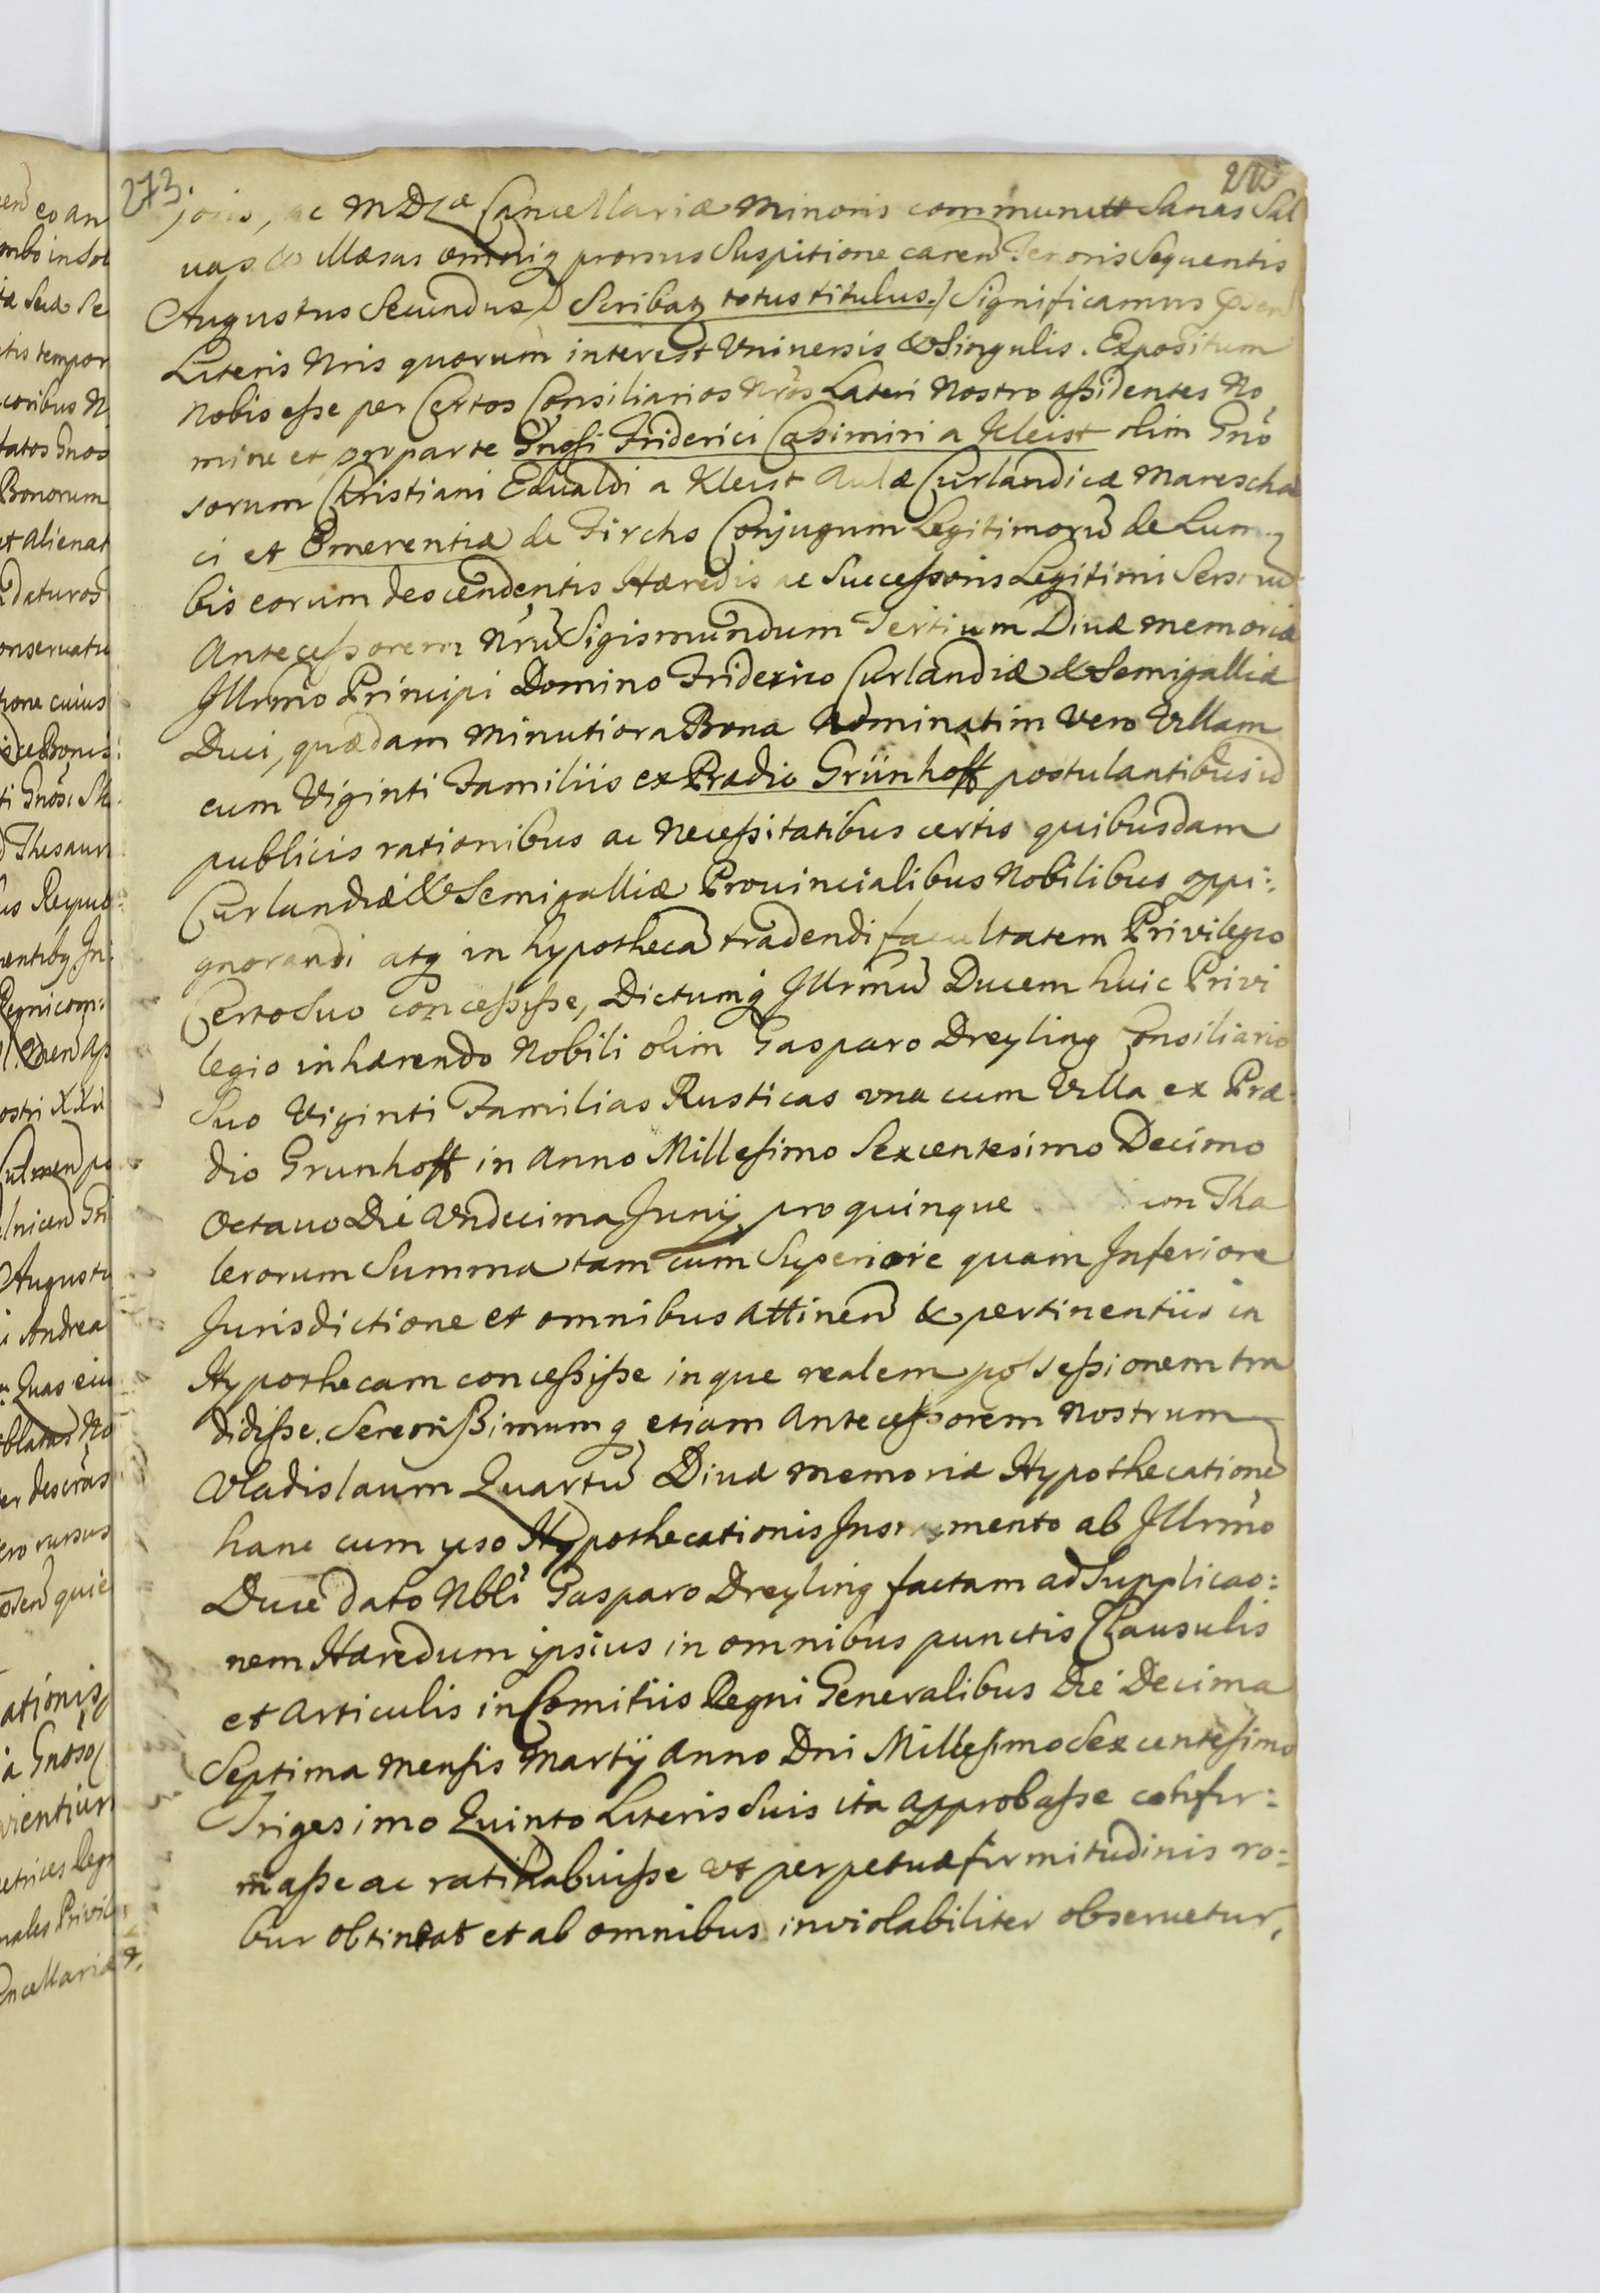 273
joris, ac MDLæ Cancellariæ Minoris communitt Sanas Sal
uas & illæsas omniq prorsus Suspitione caren Tenoris Sequentis
Augustus Secundus /) Scribatz totus titulus./ Significamus
Literis Nris quorum interest Vniuersis & Singulis. Expositum
Nobis esse per Certos Consiliarios Nros Lateri Nostro assidentes No
mine et pro parte Gnosi Friderici Casimiri a Kleist olim Gno
sorum Christiani Edualdi a Kleist Aulæ Curlandicæ Marescha
ci et Emerentiæ de Firchs Conjugum Legitimorũ de Lum
bis eorum descendentis Hæredis ac Successoris Legitimi
Antecessorem Nrũ Sigismundum Tertium Diuæ memoriæ
Illrmo Principi Domino Friderico Curlandiæ & Semigalliæ
Duci, quædam Minutiora Bona Nominatim Vero Villam
cum Viginti Familiis ex Prædio Grünhoff postulantibus id
publicis rationibus ac Necessitatibus certis quibusdam
Curlandiæ & Semigalliæ Prouincialibus Nobilibus oppi:
gnorandi atq in hypothecã tradendi facultatem Privilegio
Certo Suo concessisse, Dictumq Illrmũ Ducem huic Privi
legio inhærendo Nobili olim Gasparo Dreyling Consiliario
Suo Viginti Familias Rusticas vna cum Villa ex Præ:
dio Grunhoff in Anno Millesimo Sexcentesimo Decimo
Octauo Die Vndecima Junij pro quinque Tha
lerorum Summa tam cum Superiore quam Inferiore
Jurisdictione et omnibus Attinen & pertinentiis in
Hypothecam concessisse inque realem possessionem tra
didisse. Serenissimumq etiam Antecessorem Nostrum
Vladislaum Quartũ Diuæ memoriæ Hypothecationẽ
hanc cum ipso Hypothecationis Instrumento ab Illrmo
Duce dato Nbli Gasparo Dreyling factam ad Supplicao:
nem Hæredum ipsius in omnibus punctis Clausulis
et Articulis in Comitiis Regni Generalibus Die Decima
Septima Mensis Martij Anno Dni Millesimo Sexcentesimo
Trigesimo Quinto Literis Suis ita approbasse confir:
masse ac ratihabuisse vt perpetuæ firmitudinis ro:
bur obtineat et ab omnibus inviolabiliter obseruetur,